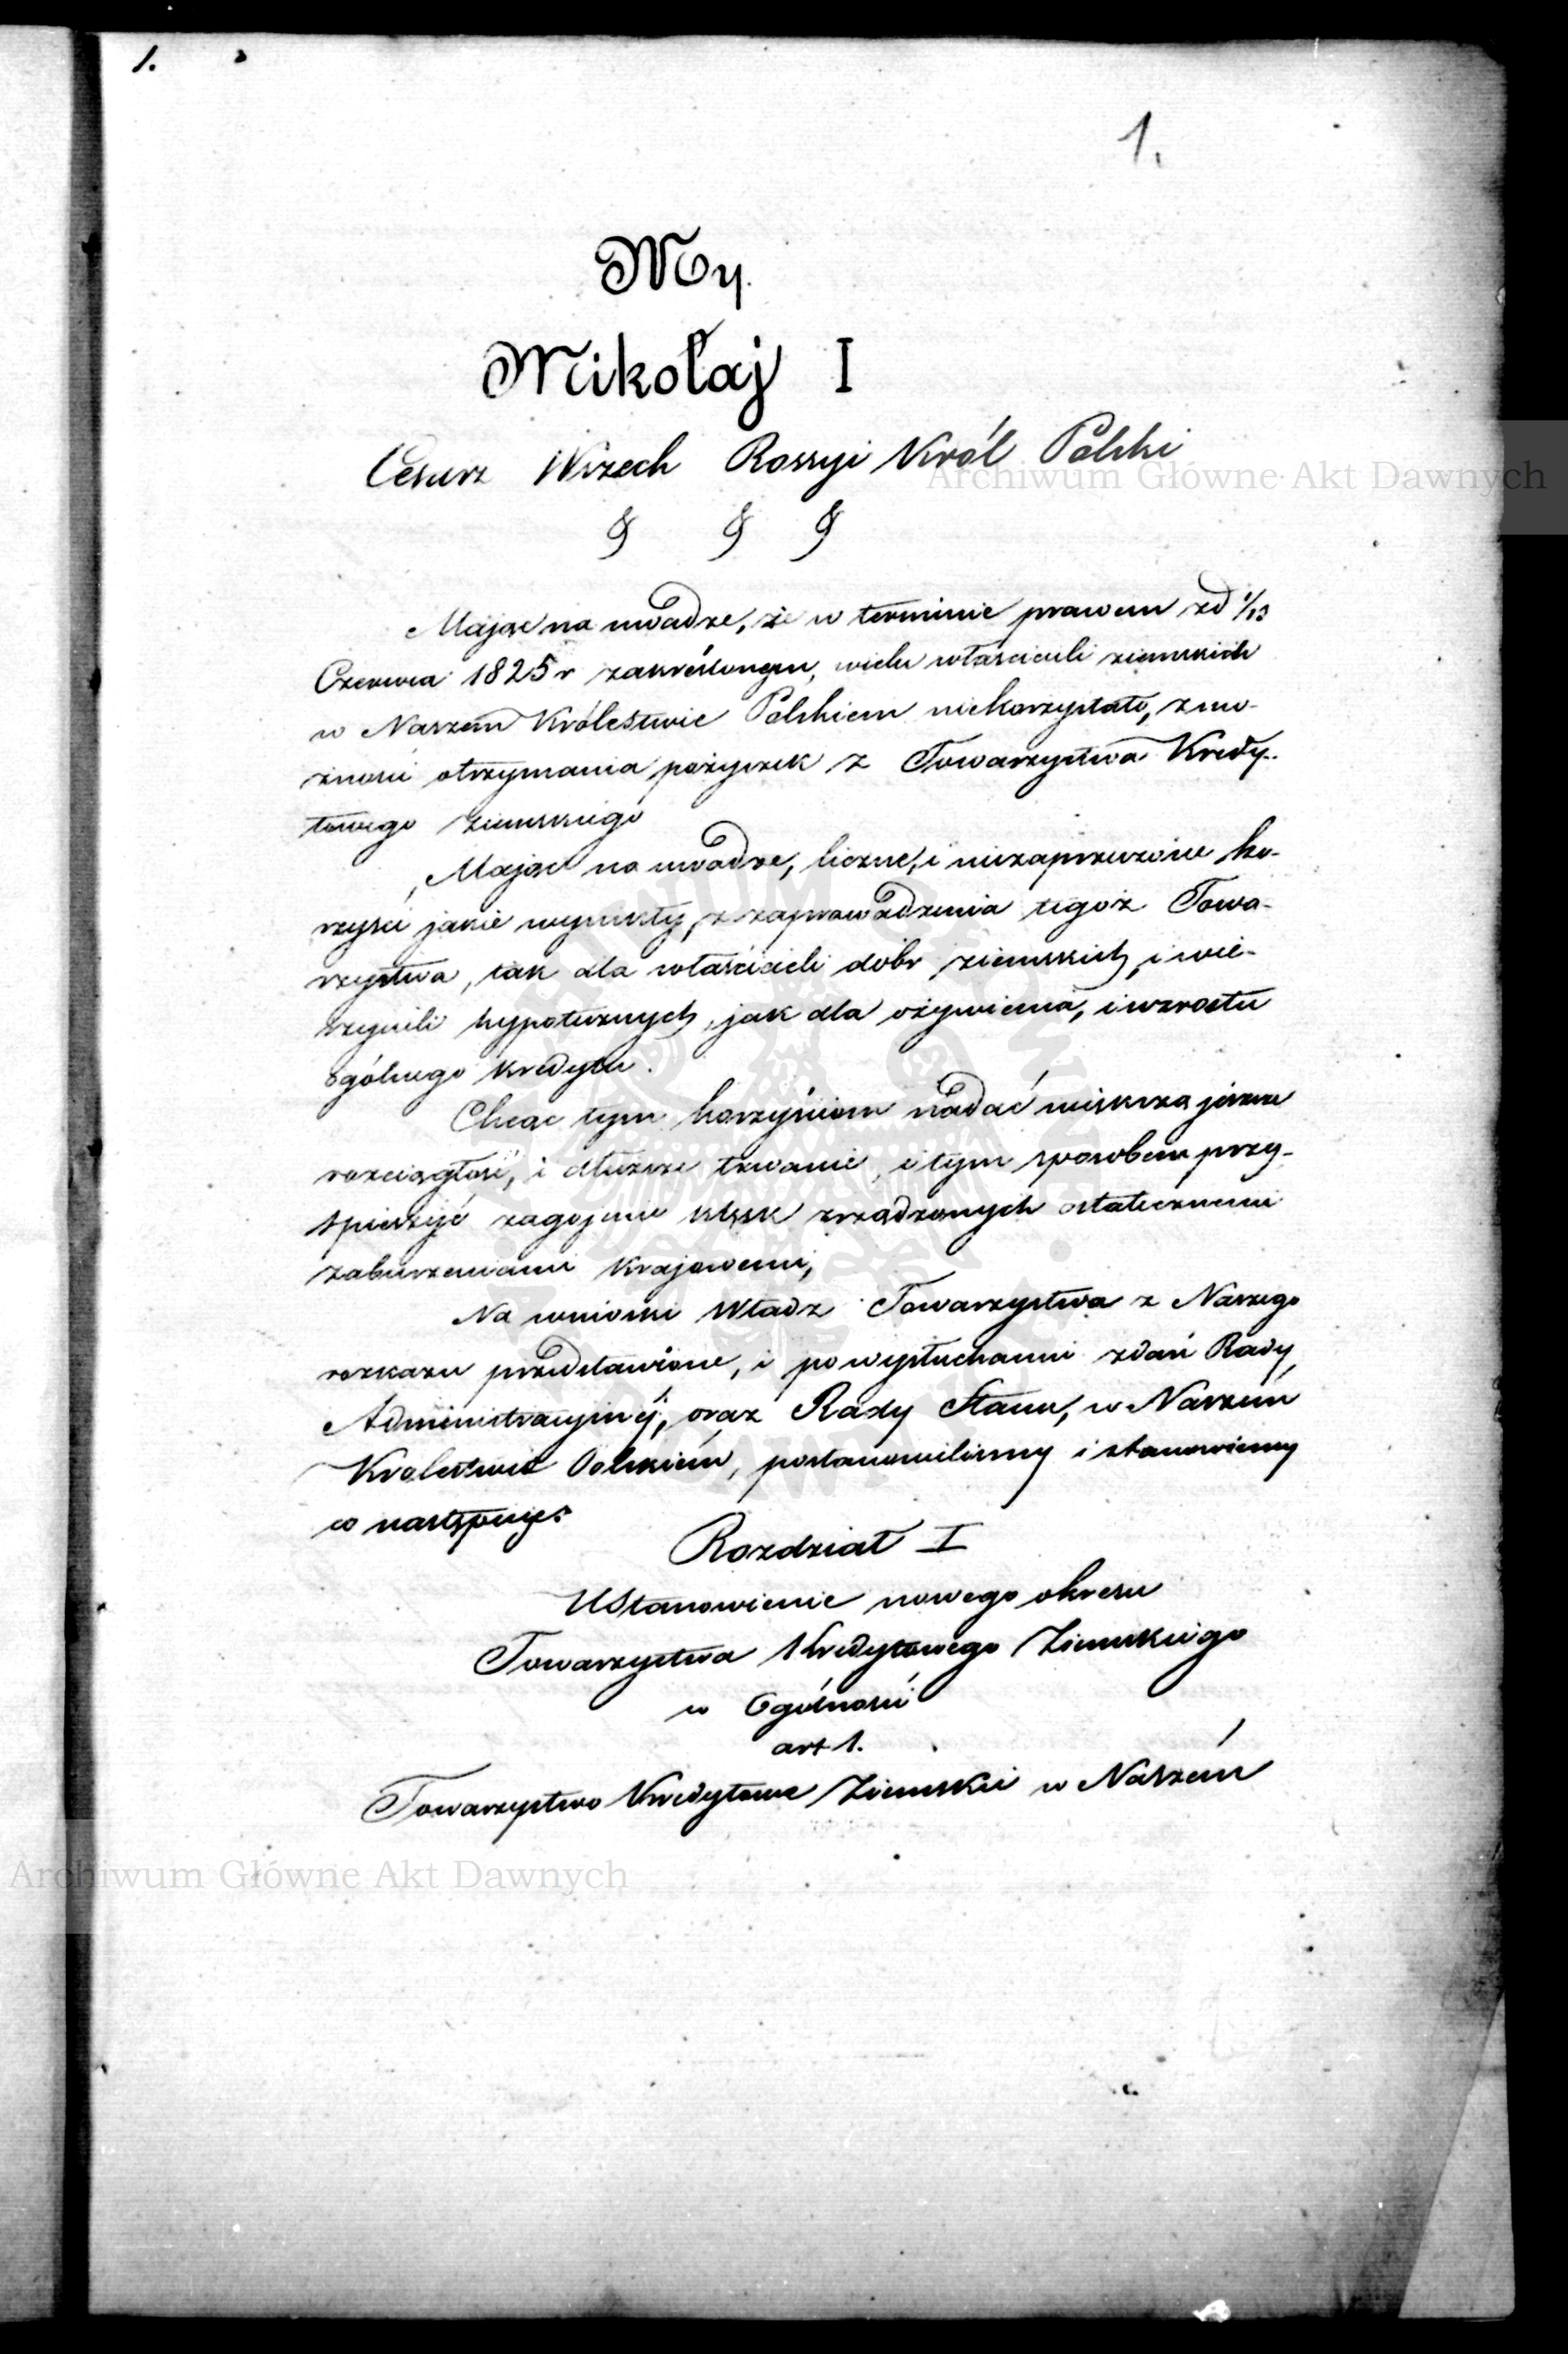 1.
1.
My
Mikołaj I
Cesarz Wszech Rossyi Król Polski
§ § §
Mając na uwadze, że w terminie prawem zd 1/13
Czerwca 1825 r zakreślonym, wielu właścicieli ziemskich
w Naszem Królestwie Polskiem niekorzystało, z mo-
żności otrzymania pożyczek z Towarzystwa Kredy-
towego Ziemskiego
Mając na uwadze, liczne, i niezaprzeczone ko-
rzyści jakie wynikły, z zaprowadzenia tegoż Towa-
rzystwa, tak dla właścicieli dóbr ziemskich, i wie-
rzycieli hypotecznych, jak dla ożywienia, i wzrostu
ogólnego kredytu.
Chcąc tym korzyściom nadać większą jeszcze
rozciągłość, i dłuższe trwanie, i tym sposobem przy-
spieszyć zagojenie klęsk zrządzonych ostatecznemi
zaburzeniami krajowemi,
Na wnioski Władz Towarzystwa z Naszego
rozkazu przedstawione, i po wysłuchaniu zdań Rady
Administracyjnéj, oraz Rady Stanu, w Naszém
Królestwie Polskiém, postanowiliśmy i stanowiemy
co następuje:
Rozdział I
Ustanowienie nowego okresu
Towarzystwa Kredytowego Ziemskiego
w Ogólności
art 1.
Towarzystwo Kredytowe Ziemskie w Naszém
Archiwum Główne Akt Dawnych
Archiwum Główne Akt Dawnych